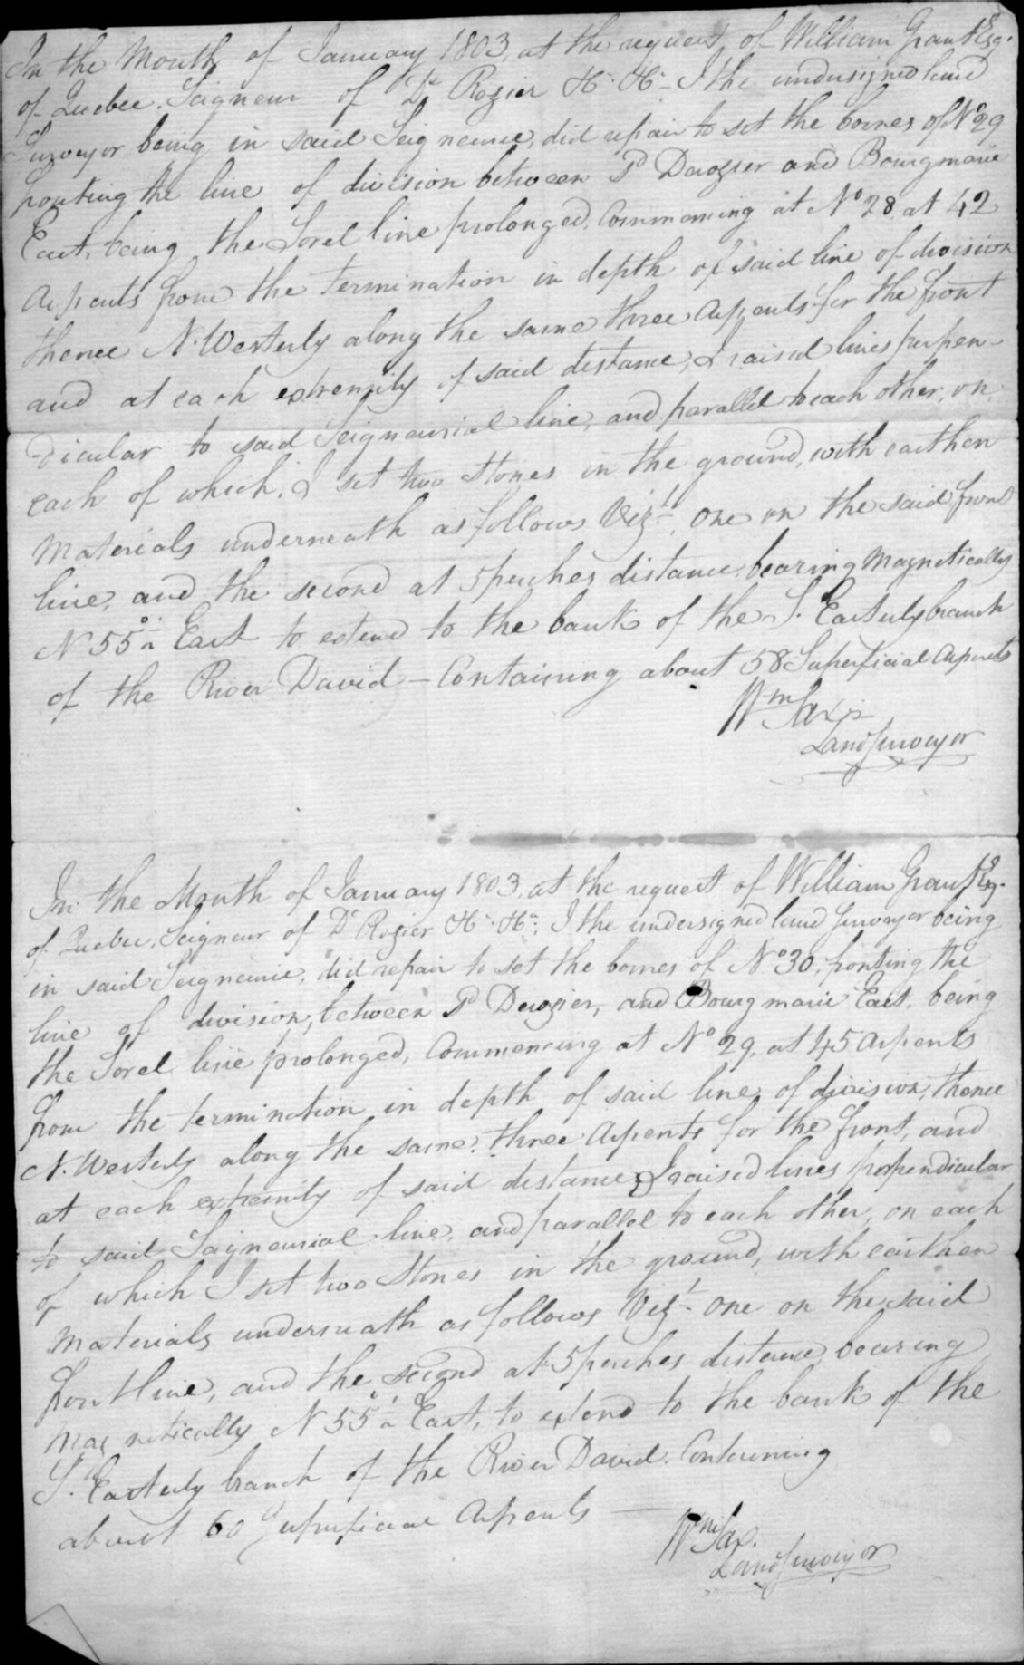 In the Month of January 1803, at the request of William Grant Esqr.
of Quebec, Seigneur of De Rozier &c. &c. I the undersigned land
Surveyor being in said Seigneurie, did repair to set the bornes of No 29
fronting the line of division between Sd Derozier and Bourgmarie
East, being the Sorel line prolonged, Commencing at No 28 at 42
Arpents from the termination in depth of said line of division
thence N. Westerly along the same three Arpents for the front
and at each extremity of said distance, I raised lines perpen-
dicular to said Seigneurial line, and parallel to each other, on
each of which, I set two Stones in the ground, with earthen
Materials underneath as follows Vizt. One on the said front
line, and the second at 5 perches distance, bearing Magnetically
N 55° East to extend to the bank of the S. Easterly branch
of the River David – Containing about 58 Superficial Arpents
Wm Sax
Land Surveyor
In the Month of January 1803, at the request of William Grant Esqr.
of Quebec, Seigneur of De Rozier &c. &c. I the undersigned land Surveyor being
in said Seigneurie, did repair to set the bornes of No 30, fronting the
line of division, between Sd Derozier, and Bourgmarie East, being
the Sorel line prolonged, Commencing at No 29, at 45 Arpents
from the termination in depth of said line of division, thence
N. Westerly along the same, three Arpents for the front, and
at each extremity of said distance, I raised lines perpendicular
to said Seigneurial line, and parallel to each other, on each
of which I set two Stones in the ground, with earthen
Materials underneath as follows Vizt. One on the said
front line, and the second at 5 perches distance bearing
Magnetically N 55° East, to extend to the bank of the
S. Easterly branch of the River David. Containing
about 60 Superficial Arpents
Wm Sax.
Land Surveyor